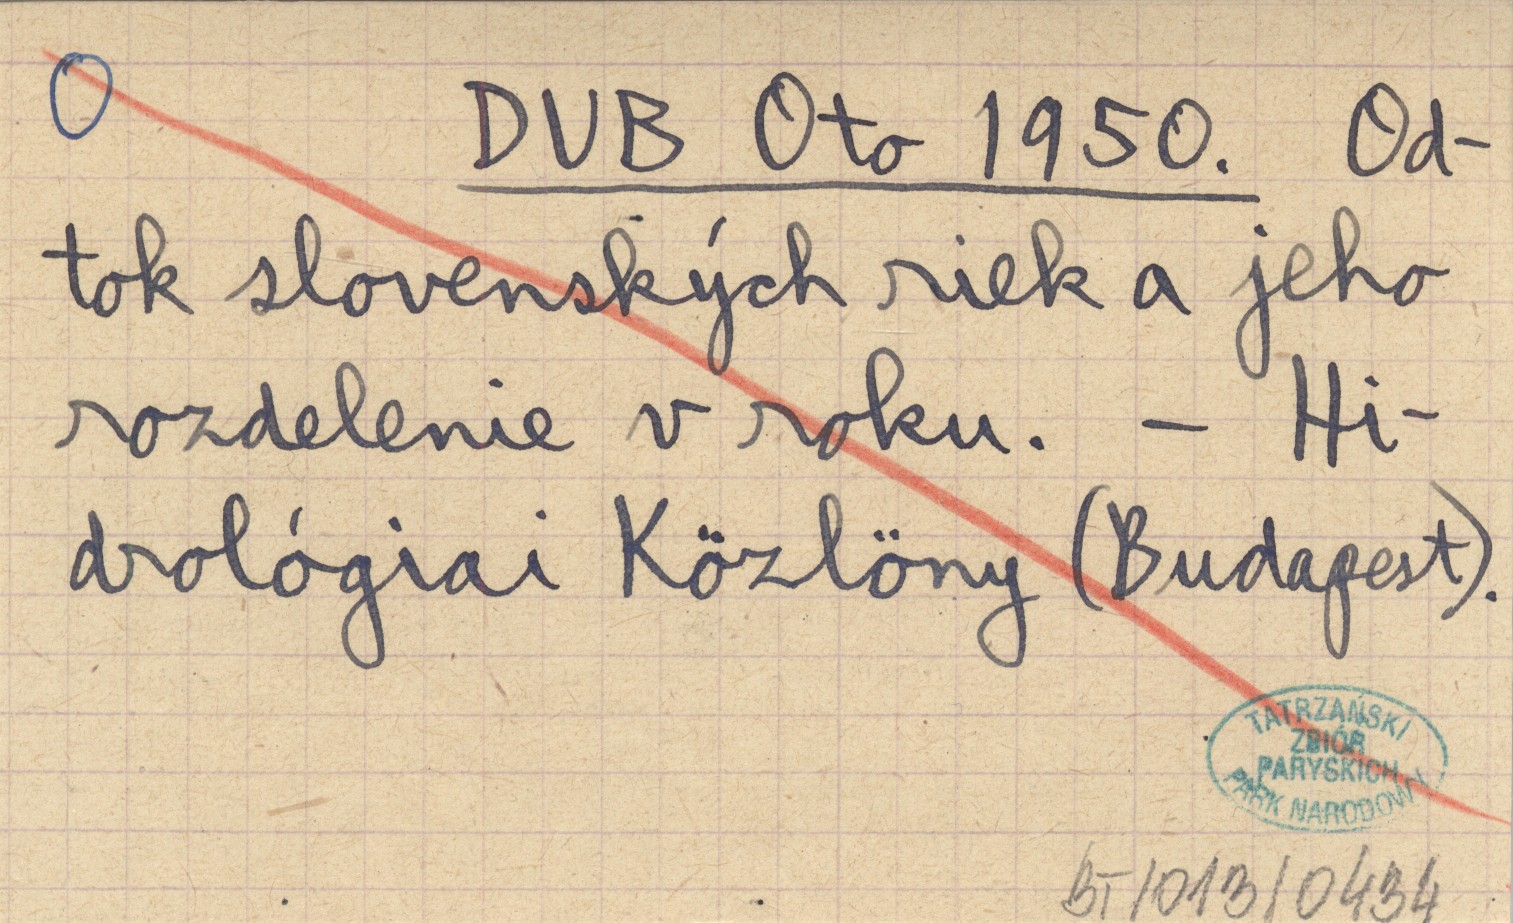 O DUB Oto 1950. Od-
tok slovenských riek a jeho
rozdelenie v roku. — Hi-
drológiai Közlöny (Budapest).
TATRZAŃSKI
ZBIÓR
PARYSKICH
PARK NARODOWY
BT/013/0434